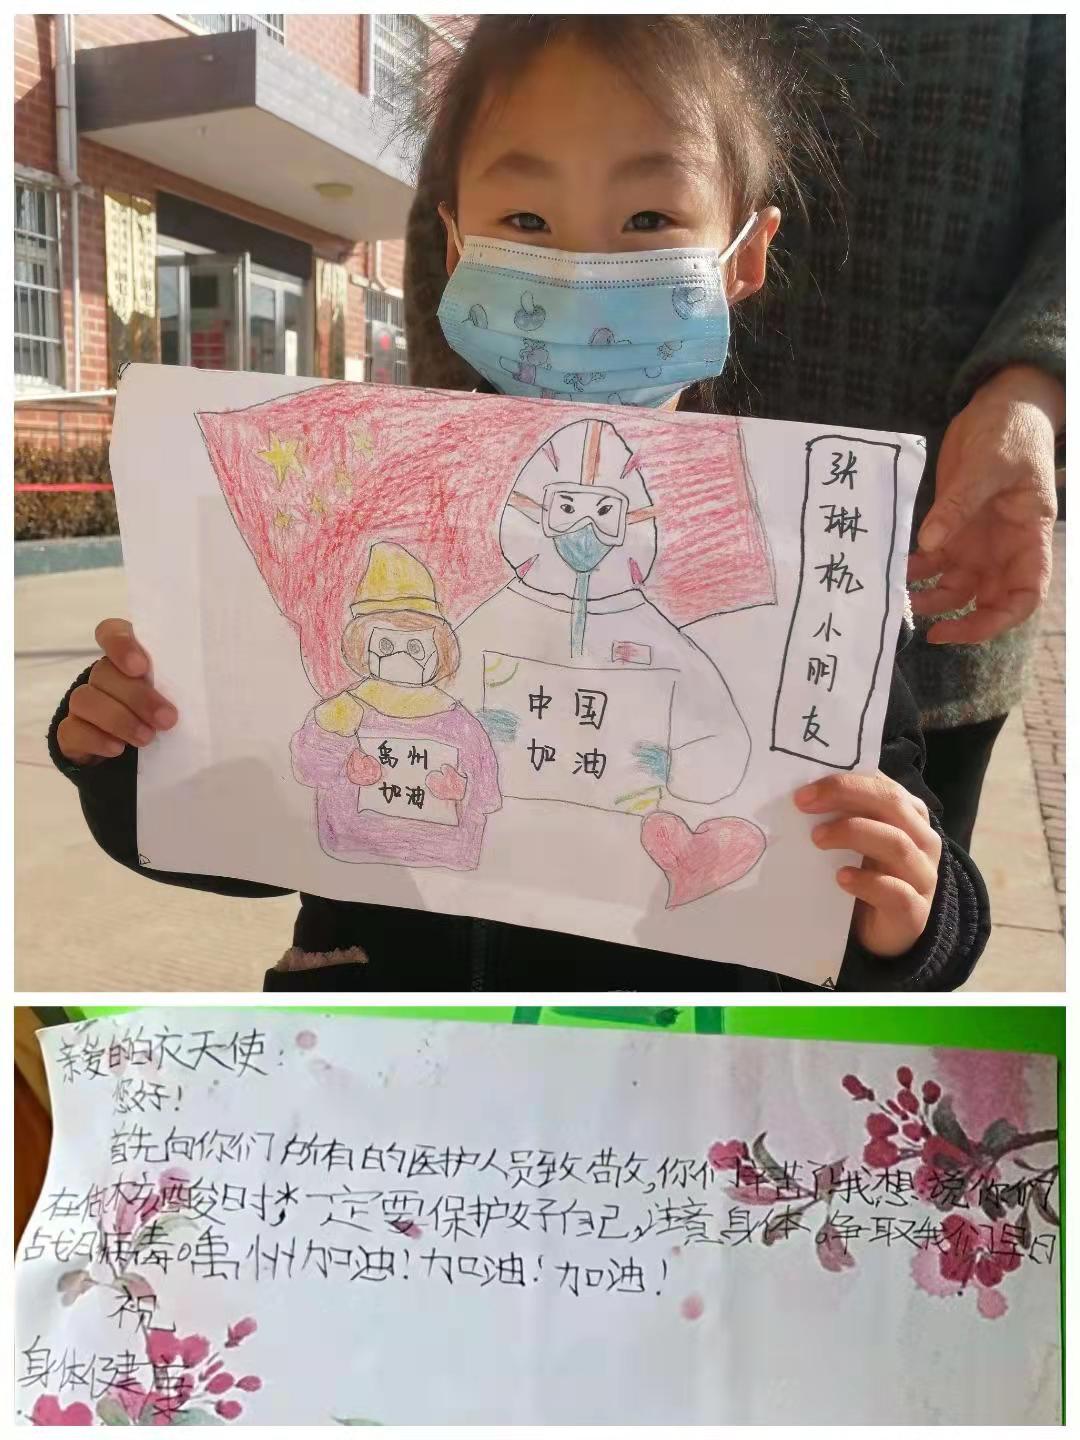 张琳杭小朋友
中国
加油
禹州
加油
亲爱的白衣天使：
您好！
首先向你们所有的医护人员致敬，你们辛苦了我想说你们
在做核酸时，一定要保护好自己，注意身体。争取我们早日
战胜病毒。禹州加油！加油！加油！
祝
身体健康